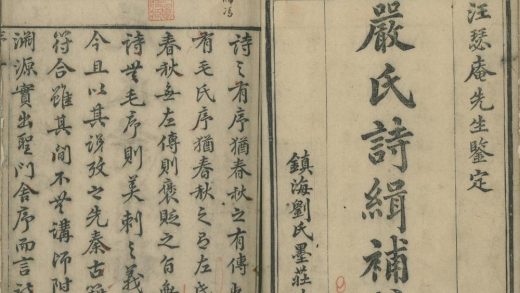 汪瑟庵先生鑒定
嚴氏詩緝補
鎮海劉氏墨莊
詩之有序猶春秋之有傳
有毛氏序猶春秋之有左氏
春秋無左傳則褒貶之旨無
詩無毛序則美刺之義
今且以其說攷之先秦古
符合雖其間不無講師附
淵源實出聖門舍序而言